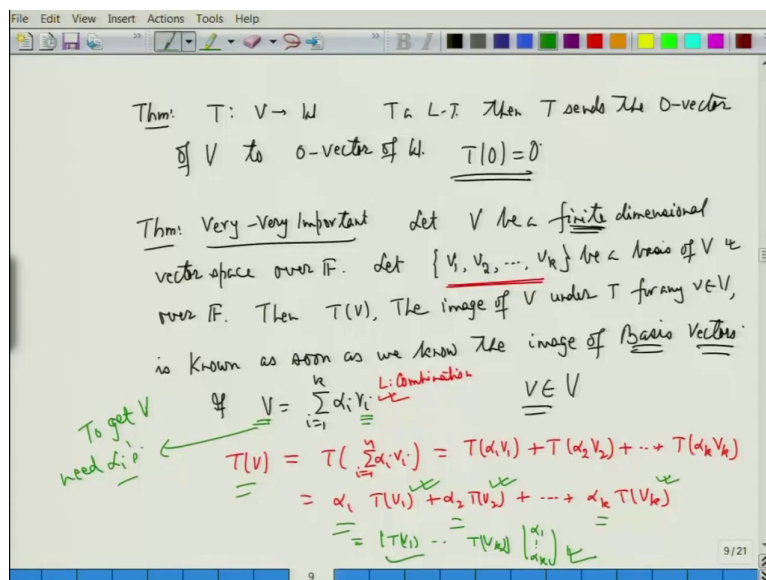 File Edit View Insert Actions Tools Help
Thm: T: V → W T a L.T. then T sends the 0-vector
of V to 0-vector of W. T(0) = 0
Thm: Very-Very Important Let V be a finite dimensional
vector space over F. Let {v₁, v₂, ..., vₖ} be a basis of V
over F. Then T(v), The image of V under T for any v∈V,
is known as soon as we know the image of Basis Vectors.
If V = ∑ᵢ₌₁ᵏ αᵢ vᵢ L. Combination v∈V
To get V
need αᵢ's
T(v) = T(∑ᵢ₌₁ⁿ αᵢ vᵢ) = T(α₁v₁) + T(α₂v₂) + ... + T(αₖvₖ)
= α₁ T(v₁) + α₂ T(v₂) + ... + αₖ T(vₖ)
= [T(v₁) ... T(vₖ)] [α₁ ⋮ αₖ]
9/21
9